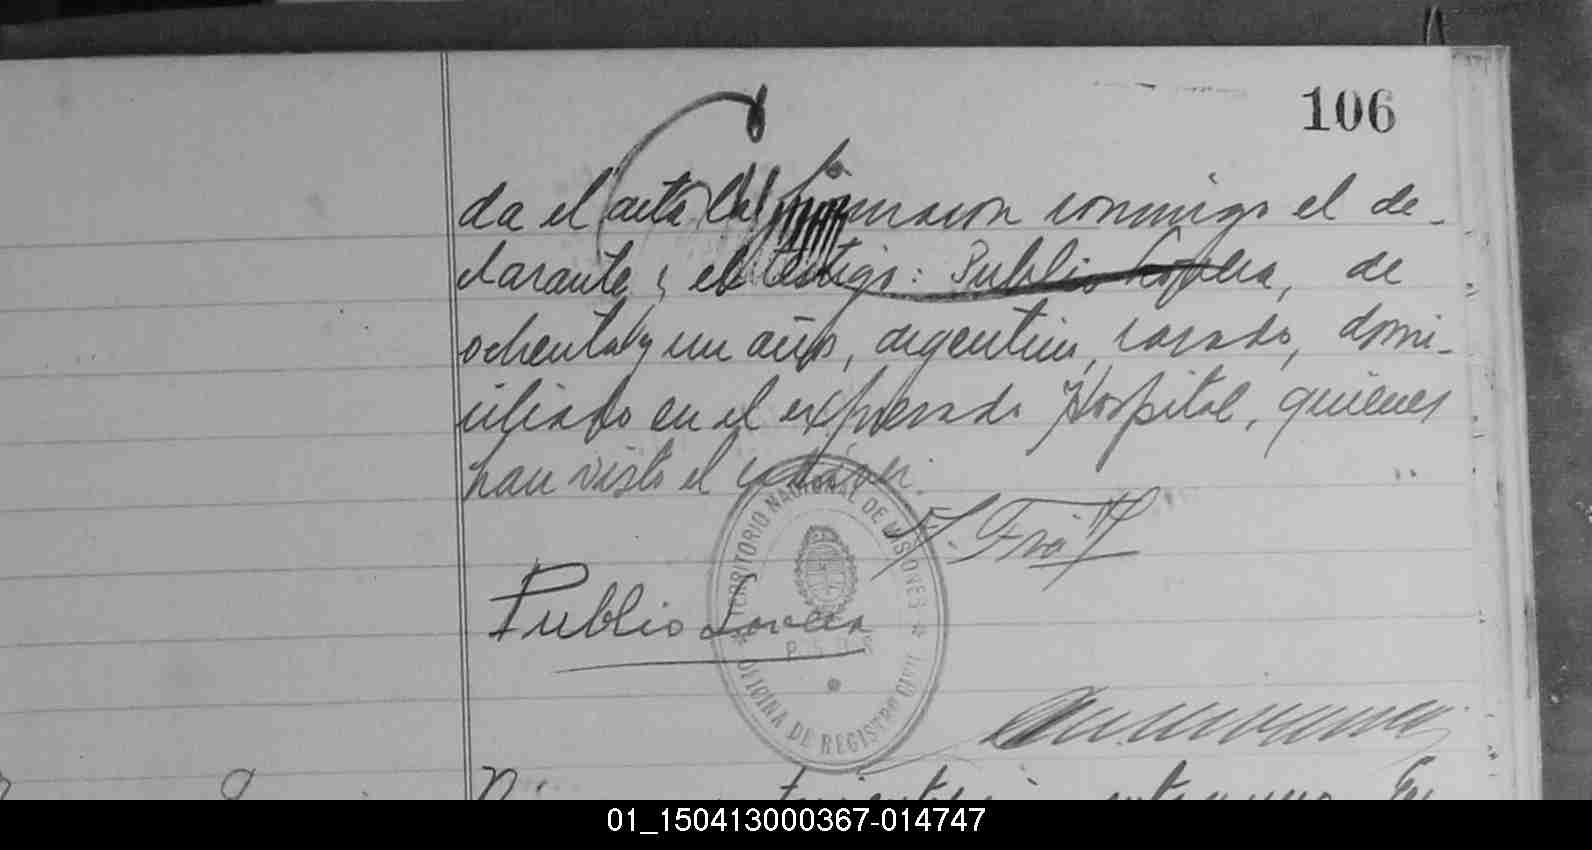 106
da el acta la firmaron conmigo el de-
clarante y el testigo: Publio Lovera, de
ochenta y un años, argentino, casado, domi-
ciliado en el expresado Hospital, quienes
han visto el cadáver.
Publio Lovera
TERRITORIO NACIONAL DE MISIONES
OFICINA DE REGISTRO CIVIL
01_150413000367-014747